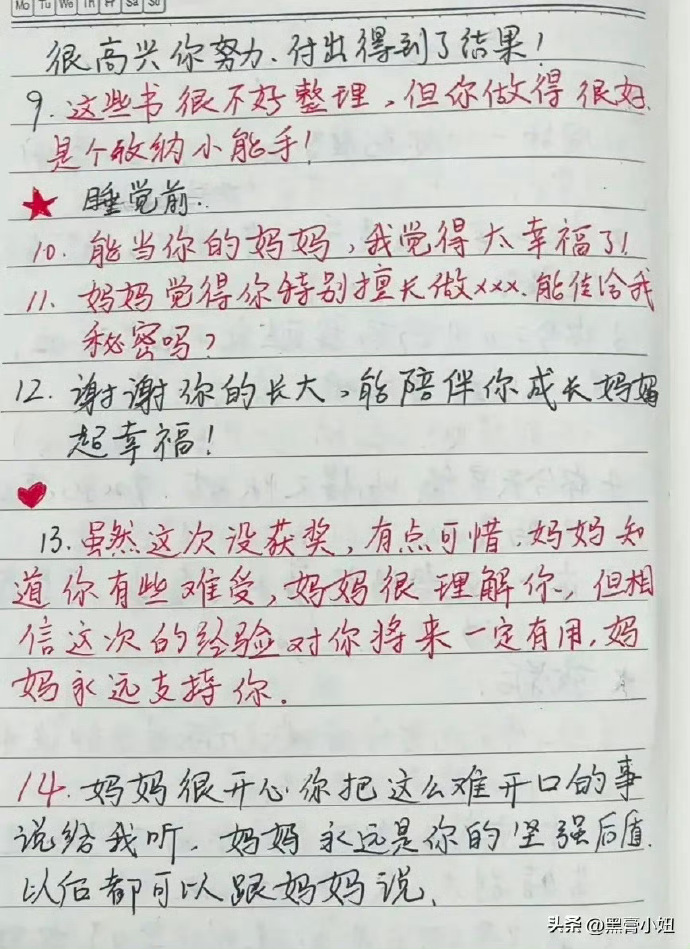 Mo Tu We Th Fr Sa Su
很高兴你努力、付出得到了结果！
9. 这些书很不好整理，但你做得很好，
是个收纳小能手！
★ 睡觉前：
10. 能当你的妈妈，我觉得太幸福了！
11. 妈妈觉得你特别擅长做×××，能传给我
秘密吗？
12. 谢谢你的长大，能陪伴你成长妈妈
超幸福！
13. 虽然这次没获奖，有点可惜，妈妈知
道你有些难受，妈妈很理解你，但相
信这次的经验对你将来一定有用，妈
妈永远支持你。
14. 妈妈很开心你把这么难开口的事
说给我听，妈妈永远是你的坚强后盾，
以后都可以跟妈妈说。
头条 @黑膏小妞